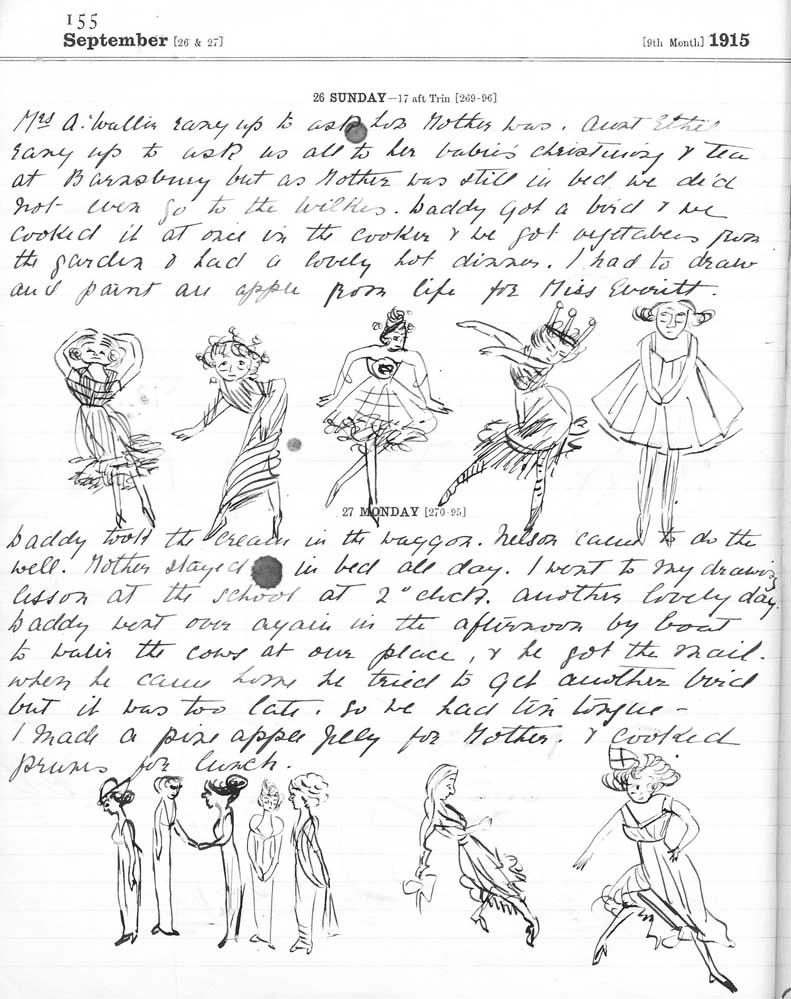 155
September [26 & 27] [9th Month] 1915
26 SUNDAY—17 aft Trin [269-96]
Mrs A. Wallis rang up to ask how Mother was. Aunt Ethel
rang up to ask us all to her babies christening & tea
at Barnsbury but as Mother was still in bed we did
not even go to the Wilkes. Daddy got a bird & we
cooked it at once in the cooker & we got vegetables from
the garden & had a lovely hot dinner. I had to draw
and paint an apple from life for Miss Everitt.
27 MONDAY [270-95]
Daddy took the cream in the waggon. Nelson came to do the
well. Mother stayed in bed all day. I went to my drawing
lesson at the school at 2 o'clock. another lovely day.
Daddy went over again in the afternoon by boat
to water the cows at our place, & he got the mail.
when he came home he tried to get another bird
but it was too late. so we had tin tongue -
I made a pine apple jelly for Mother. & cooked
prunes for lunch.